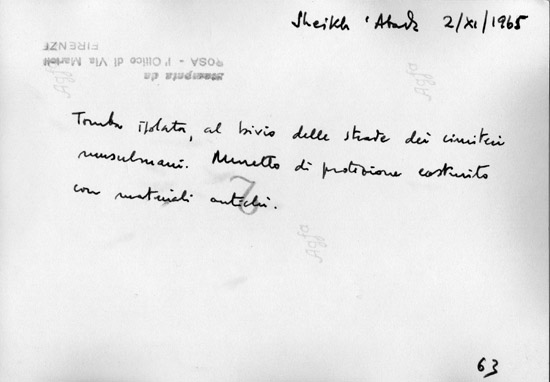 Sheikh 'Abadz 2/XI/1965
Stampata da
ROSA - l'Ottico di Via Martelli
FIRENZE
Tomba isolata, al bivio delle strade dei cimiteri
musulmani. Muretto di protezione costruito
con materiali antichi.
2
Agfa
Agfa
Agfa
63